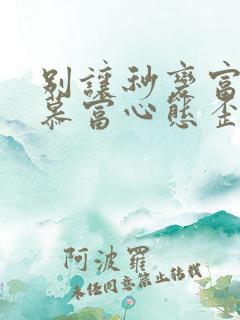 别讓秒變富
慕富心態歪
阿波羅
未经同意禁止转载